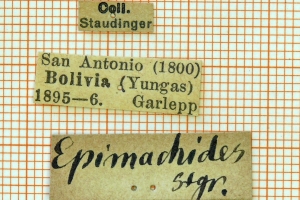 Coll.
Staudinger
San Antonio (1800)
Bolivia (Yungas)
1895—6. Garlepp
Epimachides
Stgr.